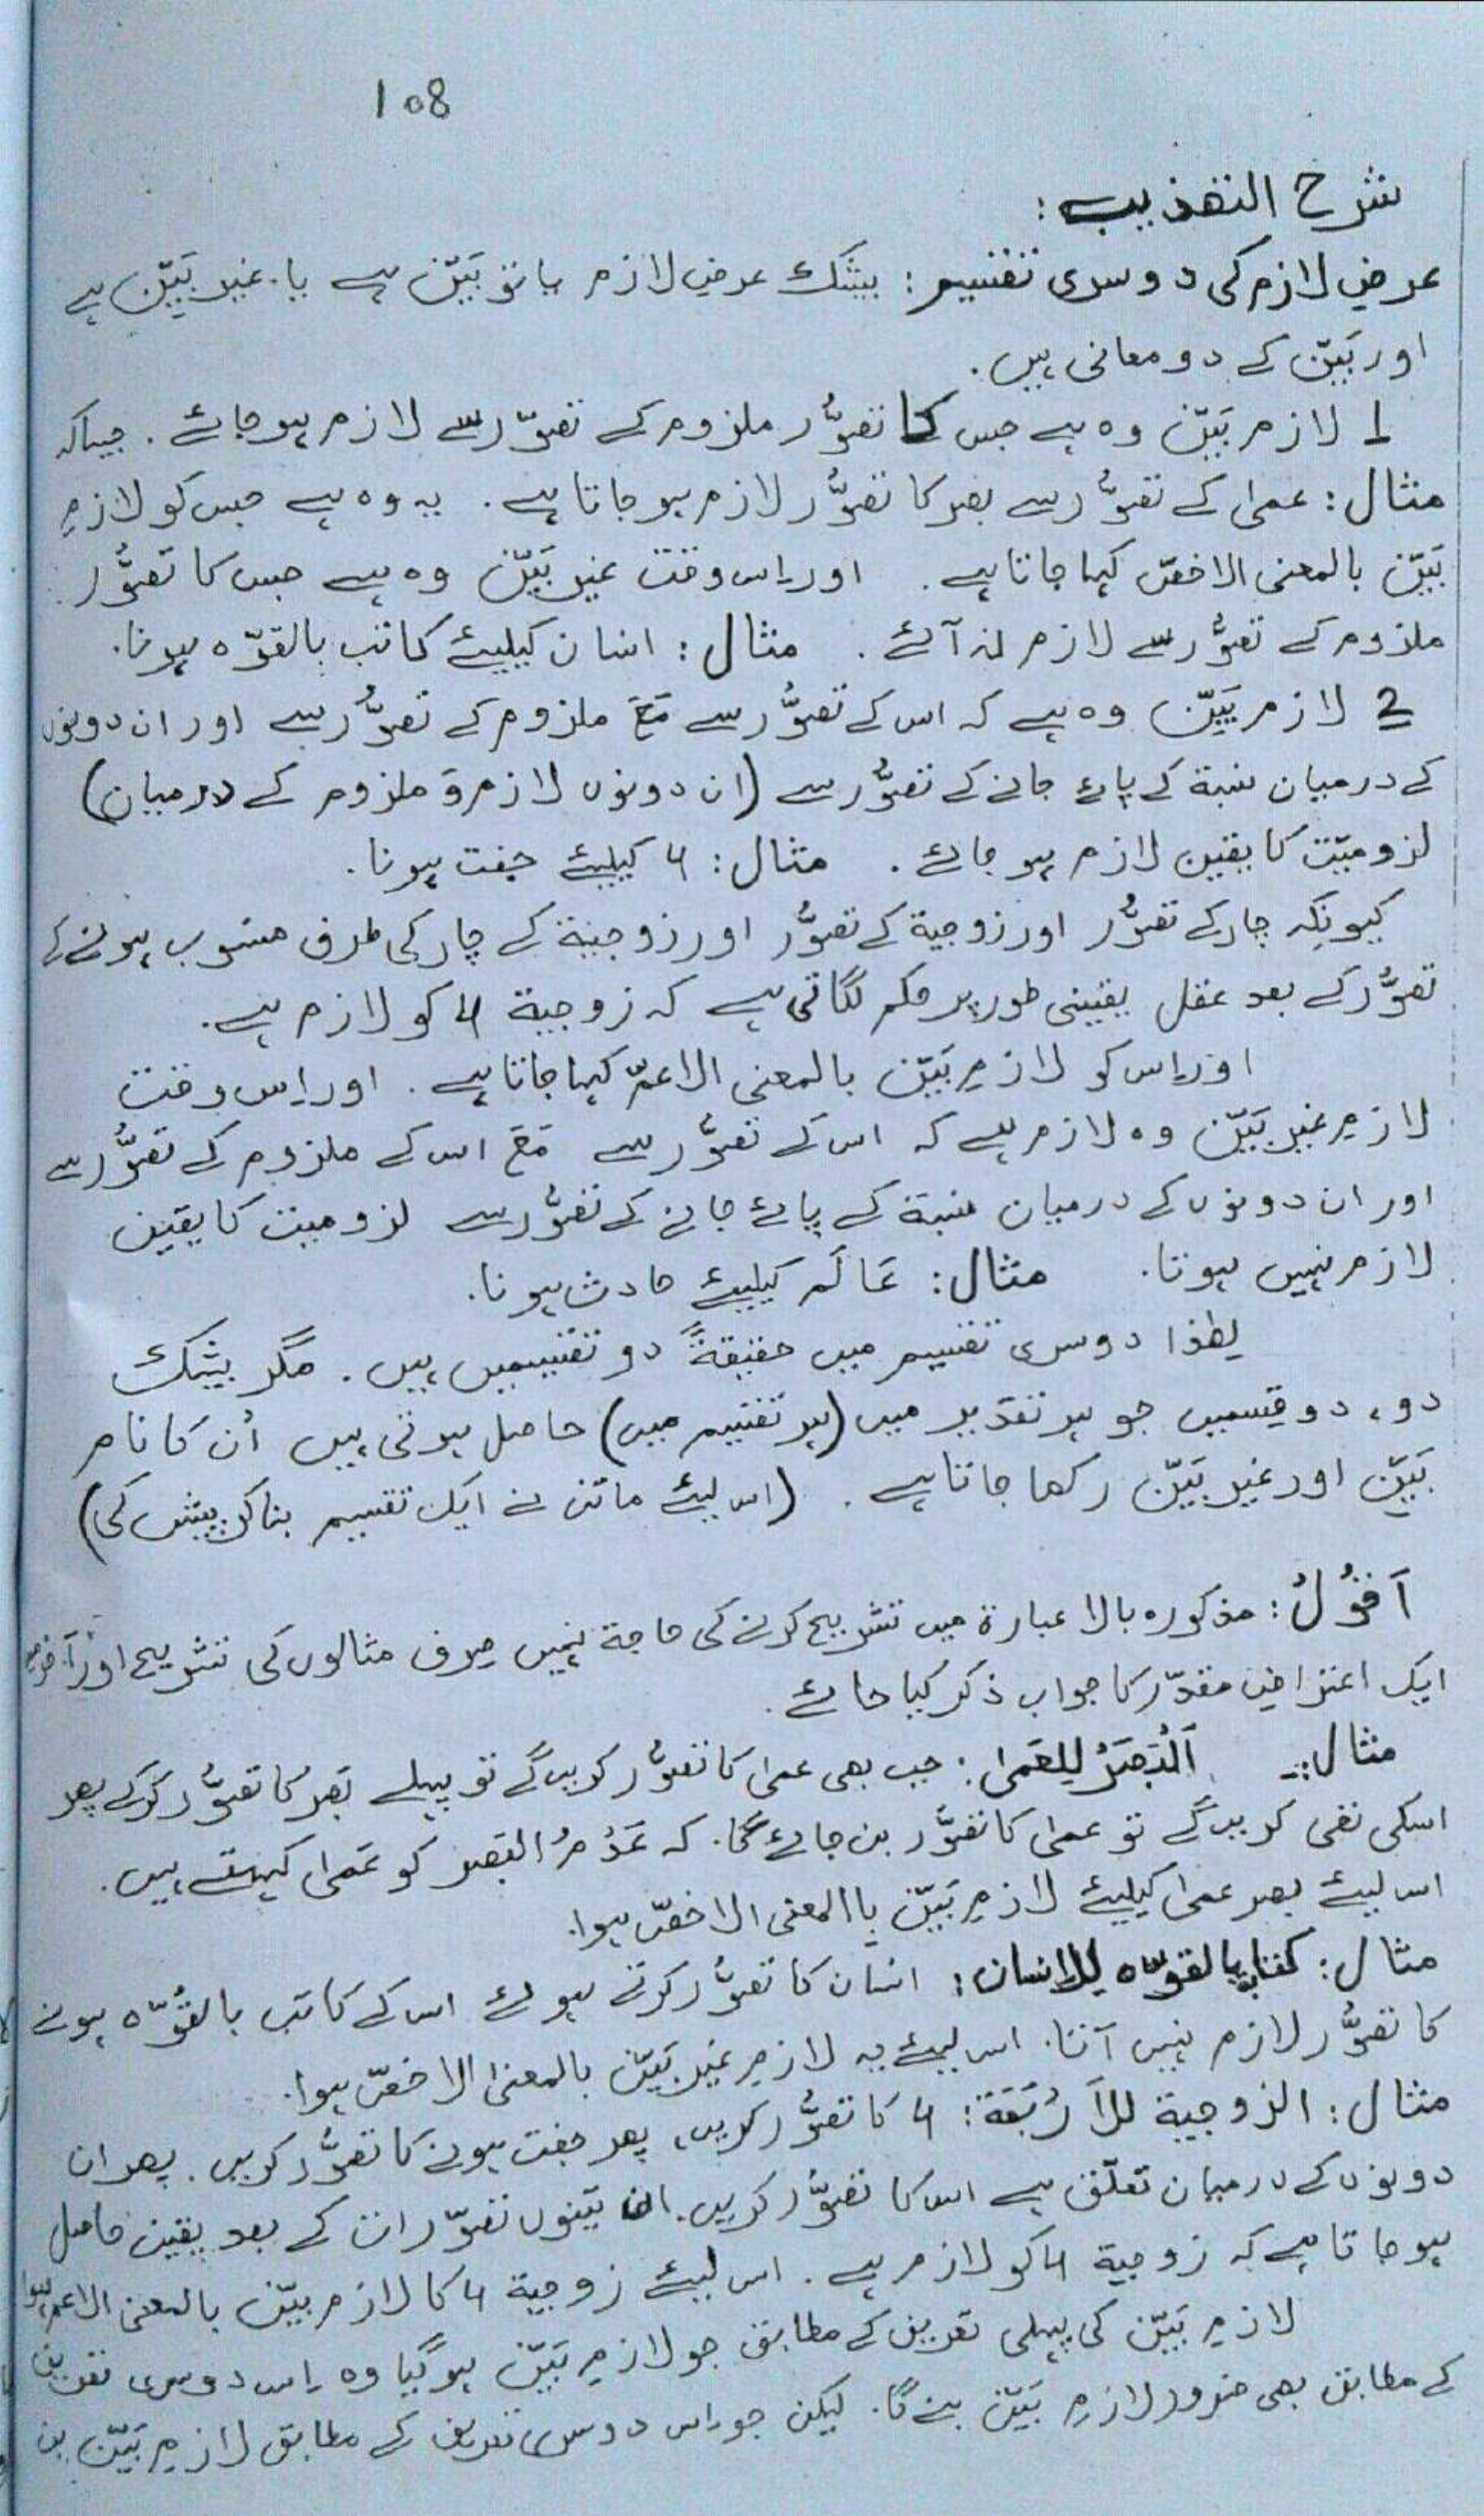 108
شرح التھذیب:
عرضِ لازم کی دوسری تقسیم: بیشک عرضِ لازم یا تو بَیِّن ہے یا غیر بَیِّن ہے
اور بَیِّن کے دو معانی ہیں.
1 لازم بَیِّن وہ ہے جس کا تصوُّر ملزوم کے تصوّر سے لازم ہو جائے. جیسا کہ
مثال: عمیٰ کے تصوُّر سے بصر کا تصوُّر لازم ہو جاتا ہے. یہ وہ ہے جس کو لازمِ
بَیِّن بالمعنی الاخصّ کہا جاتا ہے. اور اِس وقت غیر بَیِّن وہ ہے جس کا تصوُّر
ملزوم کے تصوُّر سے لازم نہ آئے. مثال: انسان کیلیئے کاتب بالقوّہ ہونا.
2 لازم بَیِّن وہ ہے کہ اس کے تصوُّر سے مَعَ ملزوم کے تصوُّر سے اور ان دونوں
کے درمیان نسبۃ کے پائے جانے کے تصوُّر سے (ان دونوں لازم وَ ملزوم کے درمیان)
لزومیّت کا یقین لازم ہو جائے. مثال: 4 کیلیئے جفت ہونا.
کیونکہ چار کے تصوُّر اور زوجیۃ کے تصوُّر اور زوجیۃ کے چار کی طرف منسوب ہونے کے
تصوُّر کے بعد عقل یقینی طور پر حکم لگاتی ہے کہ زوجیۃ 4 کو لازم ہے.
اور اِس کو لازمِ بَیِّن بالمعنی الاعمّ کہا جاتا ہے. اور اِس وقت
لازمِ غیر بَیِّن وہ لازم ہے کہ اس کے تصوُّر سے مَعَ اس کے ملزوم کے تصوُّر سے
اور ان دونوں کے درمیان نسبۃ کے پائے جانے کے تصوُّر سے لزومیت کا یقین
لازم نہیں ہوتا. مثال: عَالَم کیلیئے حادث ہونا.
لھٰذا دوسری تقسیم میں حقیقۃً دو تقسیمیں ہیں. مگر بیشک
دو، دو قِسمیں جو ہر تقدیر میں (ہر تقسیم میں) حاصل ہوتی ہیں اُن کا نام
بَیِّن اور غیر بَیِّن رکھا جاتا ہے. (اس لیئے ماتن نے ایک تقسیم بنا کر پیش کی)
اَقُوْلُ: مذکورہ بالا عبارۃ میں تشریح کرنے کی حاجۃ نہیں صرف مثالوں کی تشریح اور آخر میں
ایک اعتراضِ مقدّر کا جواب ذکر کیا جائے.
مثال:۔ اَلْبَصَرُ لِلعَمیٰ: جب بھی عمیٰ کا تصوُّر کریں گے تو پہلے بَصَر کا تصوُّر کر کے پھر
اسکی نفی کریں گے تو عمیٰ کا تصوُّر بن جائے گا. کہ عَدَمُ البَصَر کو عَمیٰ کہتے ہیں.
اس لیئے بصر عمیٰ کیلیئے لازمِ بَیِّن باالمعنی الاخصّ ہوا.
مثال: کتابۃ بالقوّہ لِلانسان: انسان کا تصوُّر کرتے ہوئے اس کے کاتب بالقُوّہ ہونے
کا تصوُّر لازم نہیں آتا. اس لیئے یہ لازمِ غیر بَیِّن بالمعنیٰ الاخصّ ہوا.
مثال: الزوجیۃ للاَرْبَعَۃ: 4 کا تصوُّر کریں، پھر جفت ہونے کا تصوُّر کریں. پھر ان
دونوں کے درمیان تعلّق ہے اس کا تصوُّر کریں. ان تینوں تصوّرات کے بعد یقین حاصل
ہو جاتا ہے کہ زوجیۃ 4 کو لازم ہے. اس لیئے زوجیۃ 4 کا لازم بیّن بالمعنی الاعم ہوا
لازمِ بَیِّن کی پہلی تعریف کے مطابق جو لازمِ بَیِّن ہو گیا وہ اِس دوسری تعریف
کے مطابق بھی ضرور لازمِ بَیِّن بنے گا. لیکن جو اِس دوسری تعریف کے مطابق لازمِ بَیِّن بن